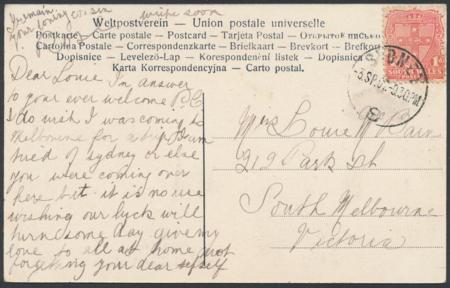 I remain
your loving cousin
write soon
Weltpostverein – Union postale universelle
Postkarte – Carte postale – Postcard – Tarjeta Postal – Открытое письмо
Cartolina Postale – Correspondenzkarte – Briefkaart – Brevkort – Brefkort
Dopisnice – Levelező-Lap – Korespondenční lístek – Dopisnica
Karta Korrespondencyjna – Carto postal.
SYDNEY
SOUTH WALES
Dear Louie In answer
to your ever welcome P.C
I do wish I was coming to
Melbourne for a trip I am
tired of sydney or else
you were coming over
here but it is no use
wishing our luck will
turn some day give my
love to all at home not
forgetting your dear self
Louie M Cain
212 Park St
South Melbourne
Victoria